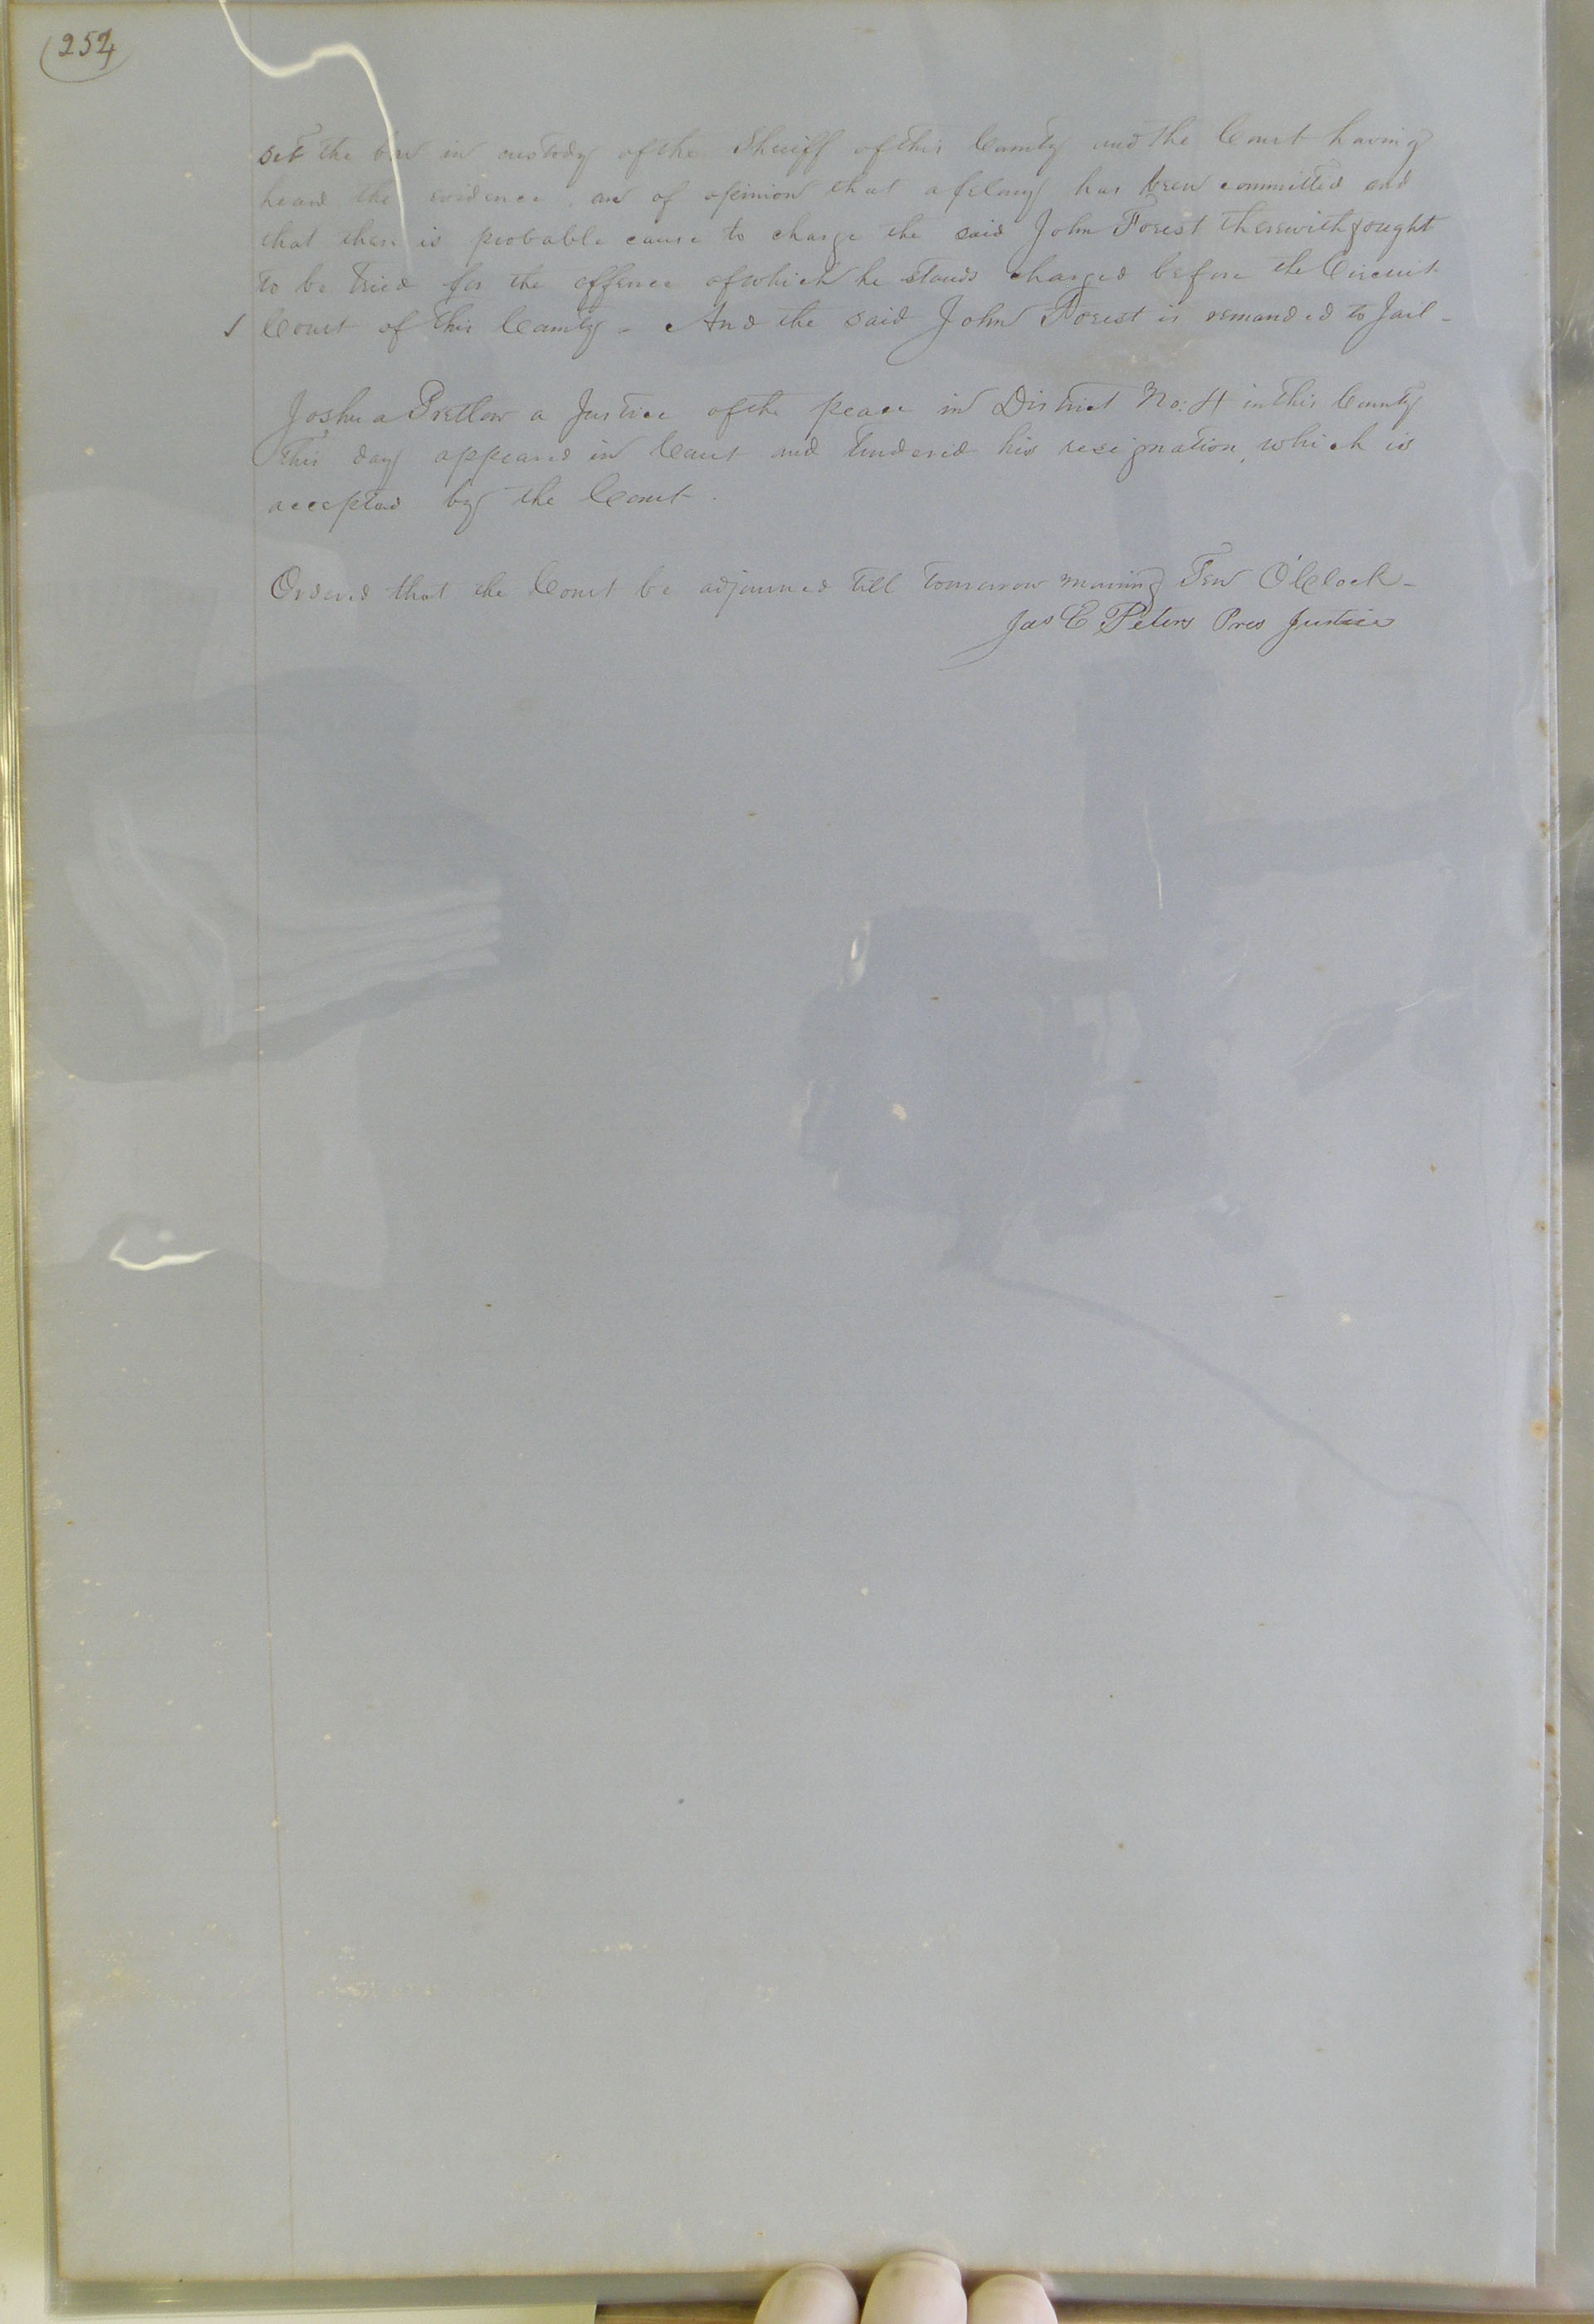 252
set the bar in custody of the Sheriff of this County and the Court having
heard the evidence are of opinion that a felony has been committed and
that there is probable cause to charge the said John Forest therewith & ought
to be tried for the offence of which he stands charged before the Circuit
Court of this County - And the said John Forest is remanded to Jail -
Joshua Pretlow a Justice of the peace in District No: 4 in this County
This day appeared in Court and tendered his resignation, which is
accepted by the Court.
Ordered that the Court be adjourned till tomorrow morning Ten O'Clock -
Jas E Peters Pres Justice